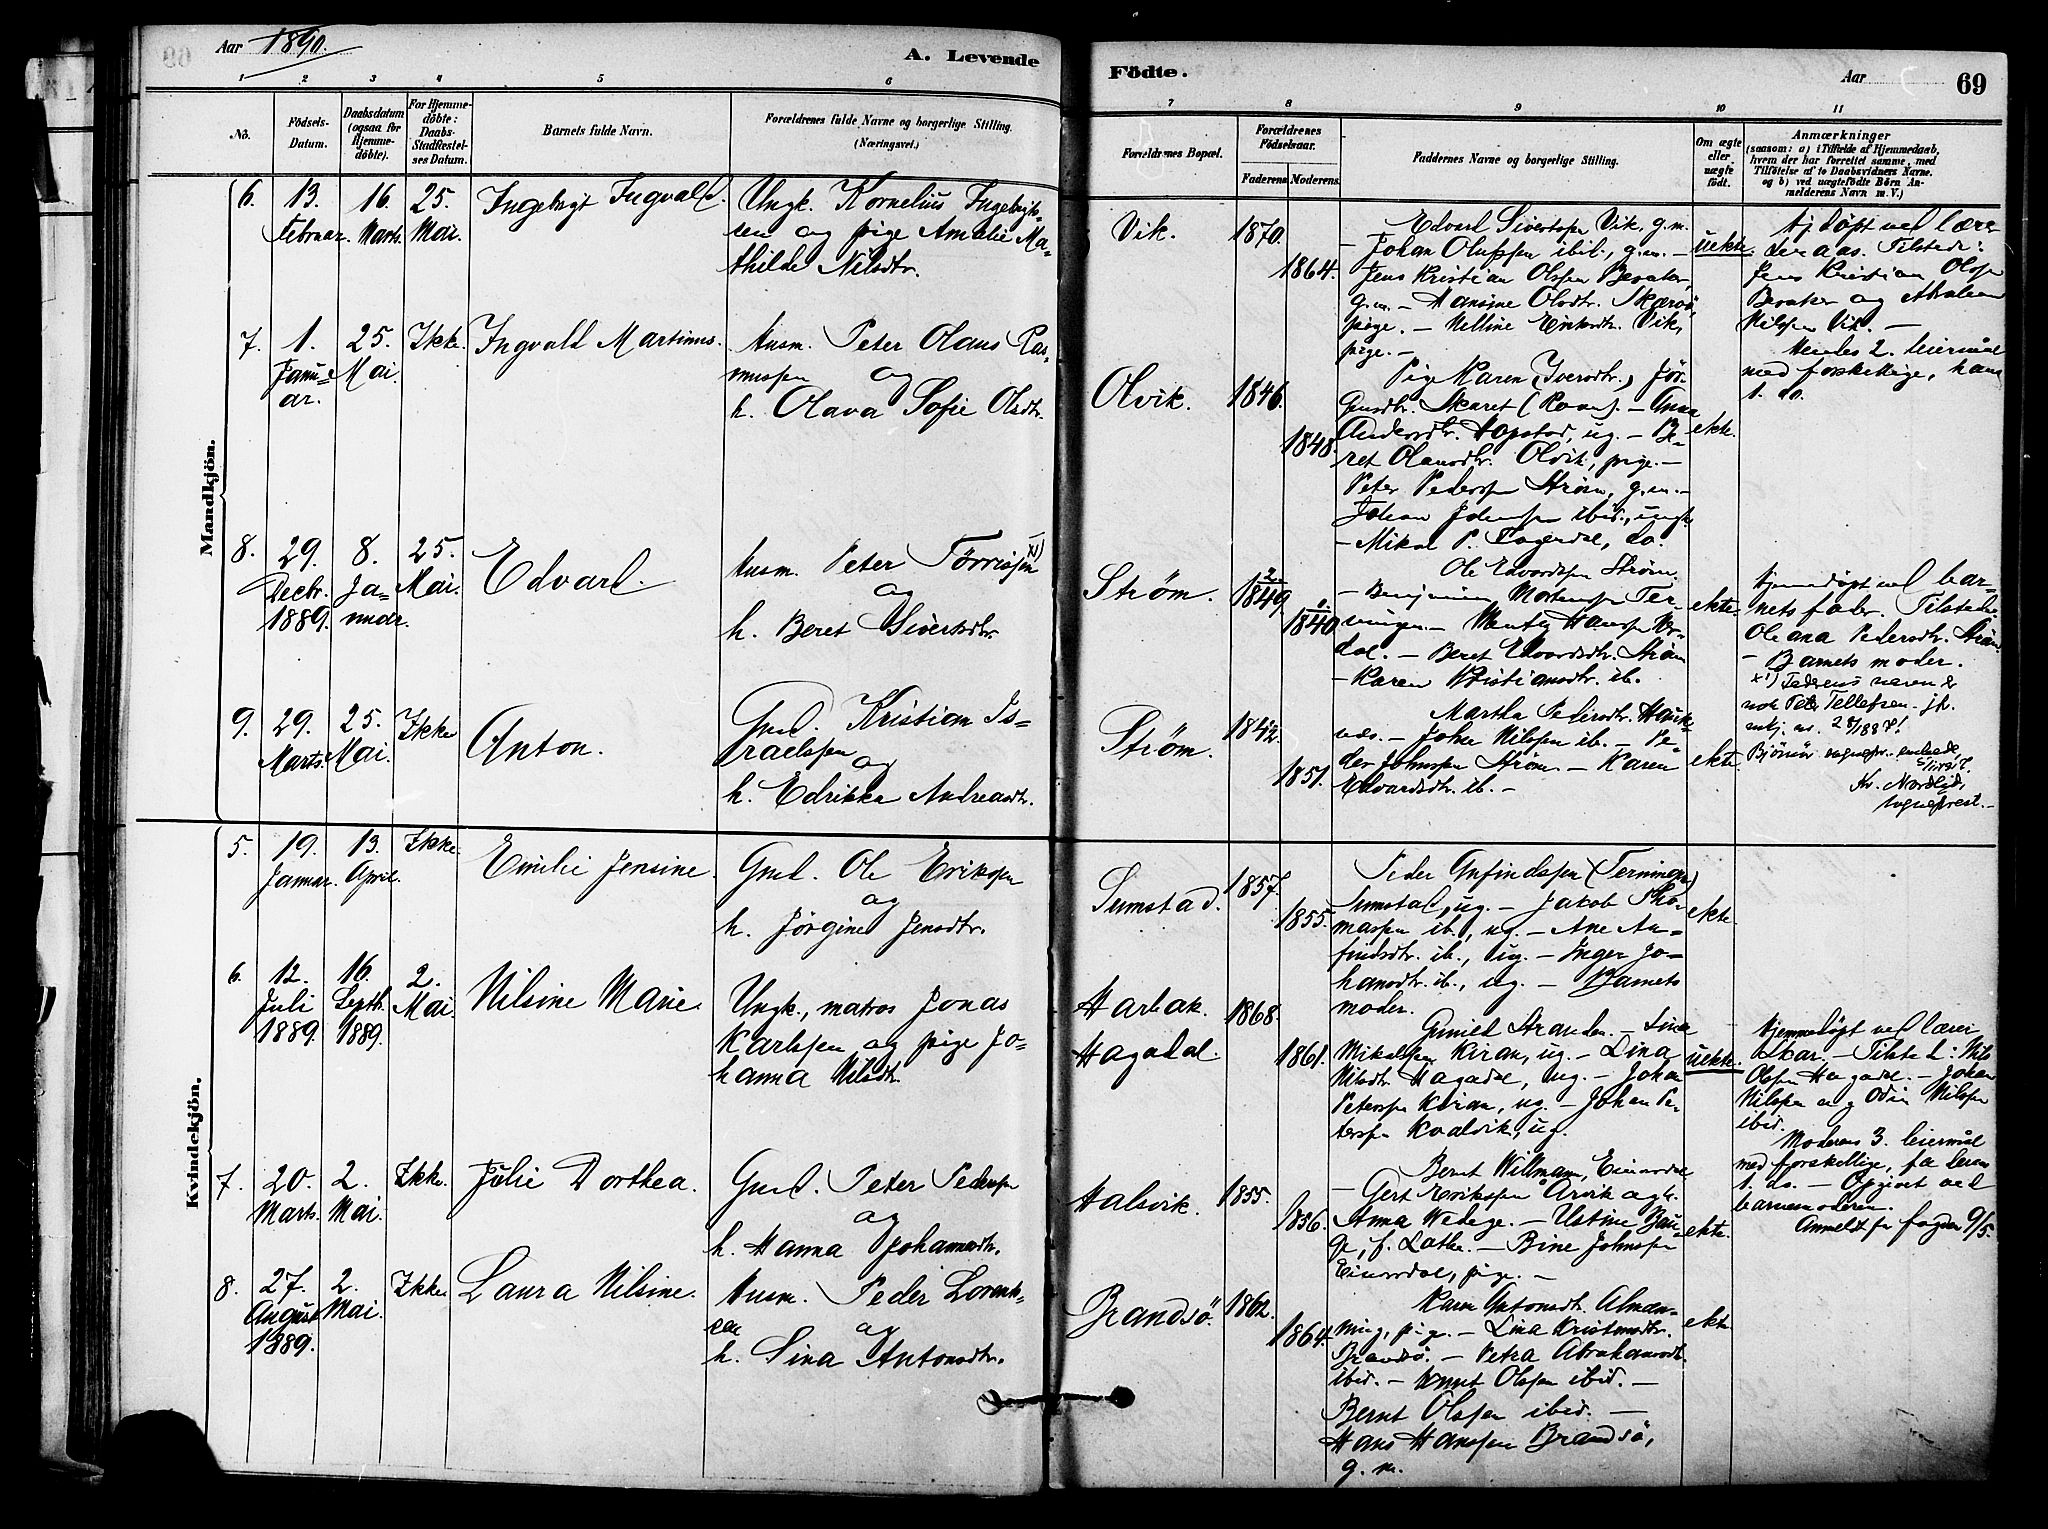 Aar 1890.
A. Levende
Födte.
Aar
69
1 2 3 4 5 6
7 8 9 10 11
No.
Födsels-
Datum.
Daabsdatum
(ogsaa for
Hjemme-
döbte).
For Hjemme-
döbte:
Daabs-
Stadfæstel-
ses Datum.
Barnets fulde Navn.
Forældrenes fulde Navne og borgerlige Stilling.
(Næringsvei.)
Forældrenes Bopæl.
Forældrenes
Födselsaar.
Faderens
Moderens.
Faddernes Navne og borgerlige Stilling.
Om ægte
eller
uægte
födt.
Anmærkninger
(saasom: a) i Tilfælde af Hjemmedaab,
hvem der har forrettet samme, med
Tilföielse af to Daabsvidners Navne.
og b) ved uægtefödte Börn An-
melderens Navn m. V.)
Mandkjön.
6.
13.
Februar.
16.
Marts.
25.
Mai.
Ingebrigt Ingvald.
Ungk. Kornelius Ingebrigt-
sen og pige Amalie Ma-
thilde Nilsdtr.
Vik.
1870.
1864.
Edvard Sivertsen Vik, g.m.
– Johan Olufsen ibid., g.m. –
Jens Kristian Olssen Beraker,
g.m. – Hansine Olsdtr. Skjærvø,
pige. – Nelline Einarsdtr. Vik,
pige. –
uekte.
Hj. døpt ved lærer
Tilstede:
Jens Kristian Olssen
Beraker og
Nilssen Vik. –
Hendes 2. leiermål
med forskellige, hans
1. do.
7.
1.
Janu-
ar.
25.
Mai.
Ikke.
Ingvald Martinus.
Husm. Peter Olaus Ras-
mussen og
h. Olava Sofie Olsdtr.
Olvik.
1846.
1848.
Pige Karen (Iversdtr.) Jør-
gensdtr. Skaret (Roan). – Anna
Andersdtr. Hopstad, ug. – Be-
ret Olausdtr. Olvik, pige. –
Peter Pederssen Strøm, g.m. –
Johan Johnssen ibid., ungk.
– Mikal P. Fagerdal, do.
ekte.
8.
29.
Decbr.
1889.
8.
Ja-
nuar.
25.
Mai.
Edvard.
Husm. Peter Tørrissen x)
og
h. Beret Sivertsdtr.
Strøm.
2
1849.
1.
1840
Ole Edvardssen Strøm.
– Benjamin Mortenssen Ter-
ningen. – Hanssen
dal. – Beret Edvardsdtr. Strøm
– Karen Kristiansdtr. ib.
ekte.
Hjemmedøpt ved bar-
nets fader. Tilstede:
Oleana Pedersdtr. Strøm
– Barnets moder.
x) Faderens navn er
nok Peter Tellefsen. jfr.
9.
29.
Marts.
25.
Mai.
Ikke
Anton.
Gmd. Kristian Is-
raelssen
og
h. Edrikka Andreasdtr.
Strøm.
1842.
1851.
Martha Pedersdtr. Hauk-
næs. – Johan Nilssen ib. – Pe-
der Johnssen Strøm. – Karen
Edvardsdtr. ib. –
ekte.
Kr. Nordlid,
sogneprest. –
Kvindekjön.
5.
19.
Januar.
13.
April.
Ikke.
Emilie Jensine.
Gmd. Ole Erikssen
og
h. Jørgine Jensdtr.
Sumstad.
1857.
1855.
Peder Anfindssen (Terningen)
Sumstad, ug. – Jakob Tho-
massen ib., ug. – Ane An-
findsdtr. ib., ug. – Inger Jo-
hansdtr. ib., ug. – Barnets
moder.
ekte.
6.
12.
Juli
1889.
16.
Septb.
1889.
2.
Mai.
Nilsine Marie.
Ungk., matros Jonas
Karlssen og pige Jo-
hanna Nilsdtr.
Harbak.
Hagadal.
1868.
1861.
Gunild Stranden. – Lina
Mikalssen Kiran, ug. – Lina
Nilsdtr Hagadal, ug. – Johan
Peterssen Kiran, ug. – Johan Pe-
terssen Kvalvik, ug.
uekte.
Hjemmedøpt ved lærer
Skar. – Tilsted: Nils
Olssen Hagadal. – Johan
Nilssen og Odin Nilssen
ibid.
Moderens 3. leiermål
med forskellige, faderens
1. do. – Opgivet ved
barnemoderen.
Anmeldt for fogden 9/5.
7.
20.
Marts.
2.
Mai.
Ikke.
Julie Dorthea.
Gmd. Peter Pedersen
og
h. Hanna Johannesdtr.
Halsvik.
1855.
1856.
Bernt Willmann, Einarsdal
– Gert Erikssen Arvik og h.
Anna Wedege. – Ustine Hau-
ge, f. Lathe. – Bine Johnssen
Einarsdal, pige. –
ekte.
8.
27.
August
1889.
2.
Mai.
Ikke.
Laura Nilsine.
Husm. Peder Lorent-
sen og
h. Sina Antonsdtr.
Brandsö.
1862.
1864.
Karen Antonsdtr. Almen-
ning, pige. – Lina Kristensdtr.
Brandsö. – Petra Abrahamsdtr.
ibid. – Knut Olssen ibid. –
Bernt Olssen ibid. –
Hans Hanssen Brandsö,
g. m.
ekte.